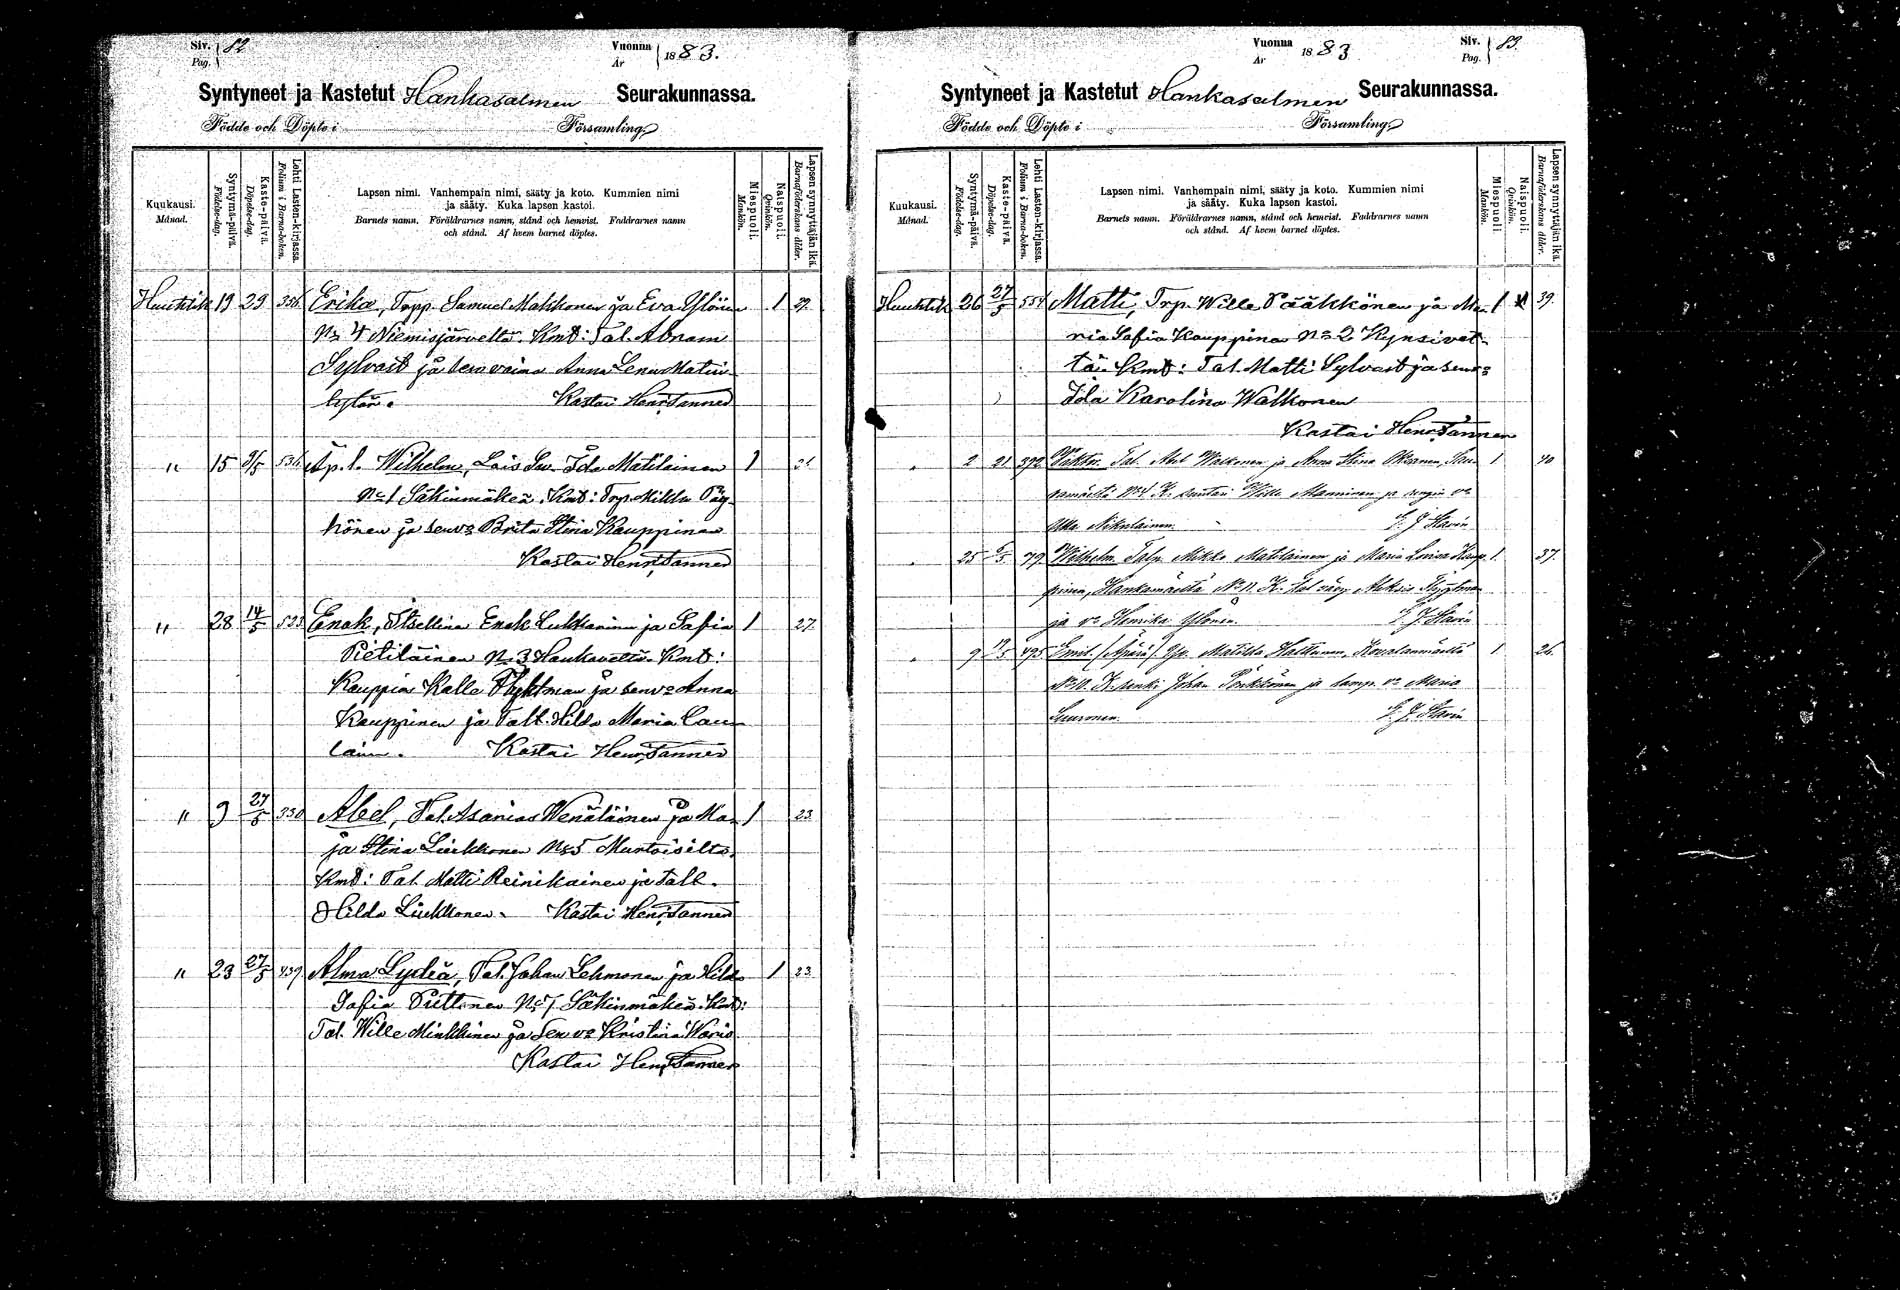 Siv. Pag. 82
Vuonna År 1883.
Syntyneet ja Kastetut Hankasalmen Seurakunnassa.
Födde och Döpte i Församling
Kuukausi. Månad.
Syntymä-päivä. Födelse-dag.
Kaste-päivä. Döpelse-dag.
Lehti Lasten-kirjassa. Folium i Barna-boken.
Lapsen nimi. Vanhempain nimi, sääty ja koto. Kummien nimi
ja sääty. Kuka lapsen kastoi.
Barnets namn. Föräldrarnes namn, stånd och hemvist. Faddrarnes namn
och stånd. Af hvem barnet döptes.
Miespuoli. Mankön.
Naispuoli. Qvinkön.
Lapsen synnyttäjän ikä. Barnaföderskans ålder.
Huhtik 19 29 356 Erika, Torpp. Samuel Makkonen ja Eva Ylönen 1 29.
No 4 Niemisjärveltä. Kmt: Tal. Abram
Sylvast ja sen vaimo Anna Lena Matin
tytär. Kastoi Henr. Tanner
" 15 5 536 Äp. l. Wilhelm, Lois Ida Matilainen 1 21.
No 1 Säkinmäkeä. Kmt: Trp. Mikko Pöy-
hönen ja sen vo Brita Stina Kauppinen
Kastoi Henr. Tanner
" 28 14/5 523 Enok, Itsellinen Enok Lukkarinen ja Sofia 1 27.
Pietiläinen No 3 Haukaveltä. Kmt:
Kauppias Kalle Flyktman ja sen vo Anna
Kauppinen ja Talt. Hilda Maria Lau-
lainen. Kastoi Henr. Tanner
" 9 27/5 330 Abel, Tal. Asarias Wenäläinen ja Ma- 1 23.
ja Stina Liukkonen No 5 Murtoisilta.
Kmt: Tal. Matti Reinikainen ja Talt.
Hilda Liukkonen. Kastoi Henr. Tanner
" 23 27/5 439 Alma Lydiä, Tal. Johan Lehmonen ja Hilda 1 23.
Sofia Puttonen No 7 Säkinmäkeä. Kmt:
Tal. Wille Minkkinen ja Sen vo Kristina Waris
Kastoi Henr. Tanner
Vuonna År 1883
Siv. Pag. 83.
Syntyneet ja Kastetut Hankasalmen Seurakunnassa.
Födde och Döpte i Församling
Kuukausi. Månad.
Syntymä-päivä. Födelse-dag.
Kaste-päivä. Döpelse-dag.
Lehti Lasten-kirjassa. Folium i Barna-boken.
Lapsen nimi. Vanhempain nimi, sääty ja koto. Kummien nimi
ja sääty. Kuka lapsen kastoi.
Barnets namn. Föräldrarnes namn, stånd och hemvist. Faddrarnes namn
och stånd. Af hvem barnet döptes.
Miespuoli. Mankön.
Naispuoli. Qvinkön.
Lapsen synnyttäjän ikä. Barnaföderskans ålder.
Huhtik 26 27/5 554 Matti, Trp. Wille Pääkkönen ja Ma- 1 39.
ria Sofia Kauppinen No 2 Kynsivet-
tä. Kmt: Tal. Matti Sylvast ja sen vo
Ida Karolina Walkonen
Kastoi Henr. Tanner
" 2 21 392 Viktor. Tal. Abel Walkonen ja Anna Stina Oksanen, Sau- 1 40
vamäeltä No 4. K. suutari Wille Manninen ja vo
Ulla Nikulainen. G. J. Starin
" 25 6/5 79. Wilhelm. Talp. Mikko Matilainen ja Maria Lovisa Kaup- 1. 37.
pinen, Hankamäeltä No 11. K. tal. Aleksis Flygtman
ja vo Henrika Ylönen. G. J. Starin
" 9 13/5 495 Emil (Äpärä) Matilda Hattunen, Kovalanmäeltä 1 26.
No 11. K. renki Johan Pörkkönen ja lamp. vo Maria
Suuronen. G. J. Starin